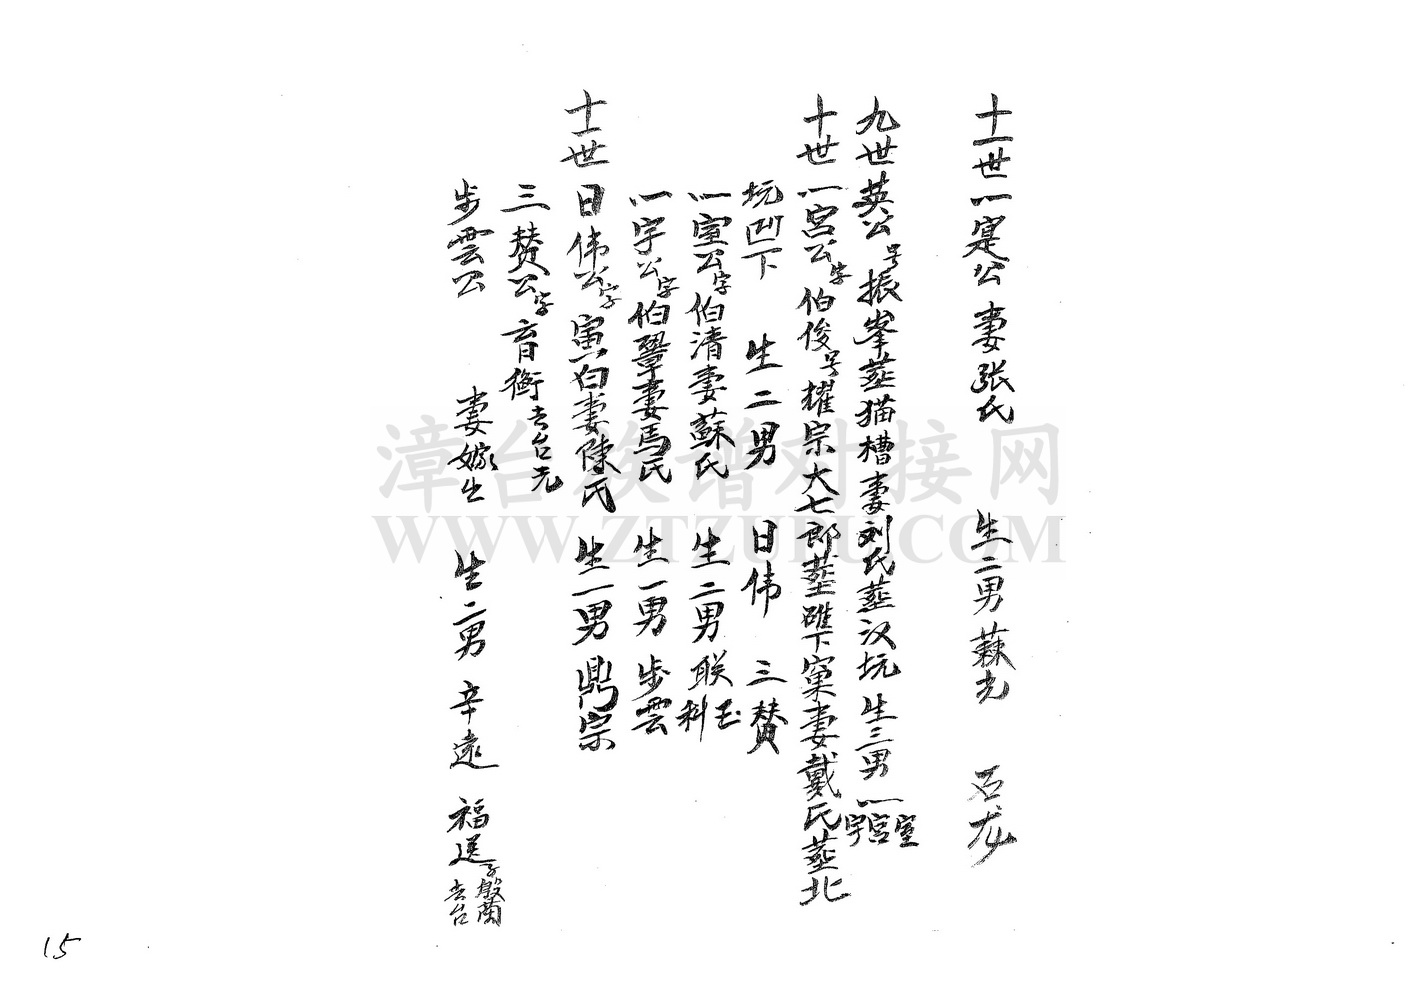 十一世一寔公 妻張氏 生二男 蔴光 石龙
九世英公号振峯葬猫槽妻刘氏葬汉坑生三男一室宫宇
十世一宫公字伯俊号耀宗大七郎葬碓下窠妻戴氏葬北
坑凹下 生二男 日伟 三赞
一室公字伯清妻蘇氏 生二男 联玉 科
一宇公字伯翚妻馬氏 生一男 步雲
十一世 日伟公字寅白妻陳氏 生一男 鼎宗
三赞公字育衡去台元
步雲公 妻嫁生 生二男 辛遠 福送子殿蘭去台
15
漳台族谱对接网
WWW.ZTZUPU.COM